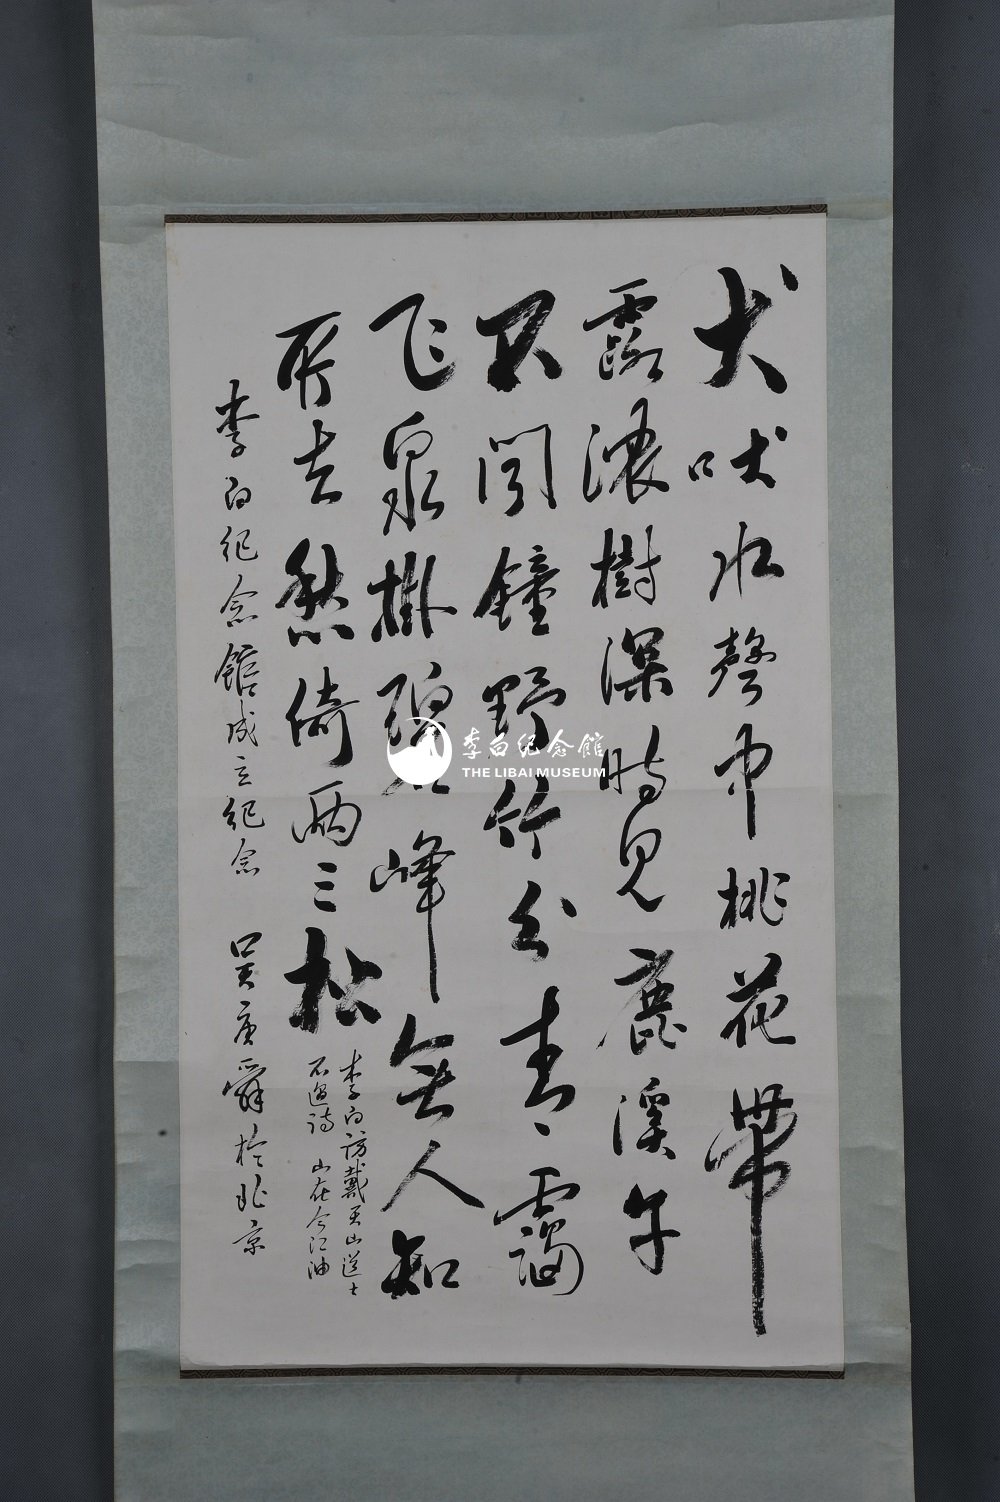 犬吠水聲中桃花帶
露濃樹深時見鹿溪午
不聞鐘野竹分青靄
飞泉掛碧峰無人知
所去愁倚兩三松
李白訪戴天山道士
不遇詩 山在今江油
李白纪念館成立纪念 吴庚舜於北京
李白纪念館
THE LIBAI MUSEUM